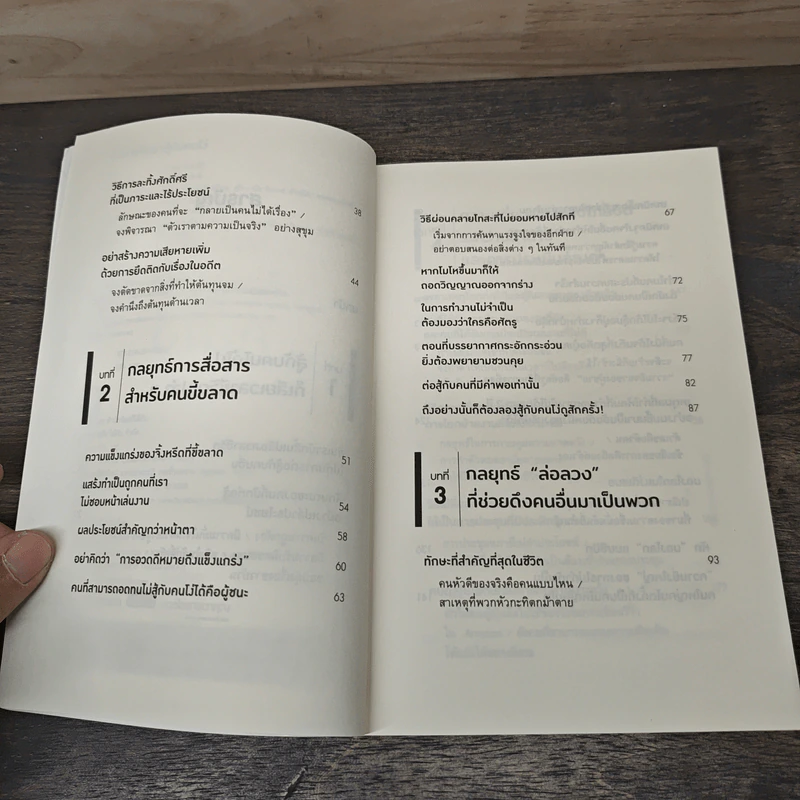 วิธีการละทิ้งศักดิ์ศรี
ที่เป็นภาระและไร้ประโยชน์ 38
ลักษณะของคนที่จะ "กลายเป็นคนไม่ได้เรื่อง" /
จงพิจารณา "ตัวเราตามความเป็นจริง" อย่างสุขุม
อย่าสร้างความเสียหายเพิ่ม
ด้วยการยึดติดกับเรื่องในอดีต 44
จงตัดขาดจากสิ่งที่ทำให้ต้นทุนจม /
จงคำนึงถึงต้นทุนด้านเวลา
บทที่
2
กลยุทธ์การสื่อสาร
สำหรับคนขี้ขลาด
ความแข็งแกร่งของจิ้งหรีดที่ขี้ขลาด 51
แสร้งทำเป็นถูกคนที่เรา
ไม่ชอบหน้าเล่นงาน 54
ผลประโยชน์สำคัญกว่าหน้าตา 58
อย่าคิดว่า "การอวดดีหมายถึงแข็งแกร่ง" 60
คนที่สามารถอดทนไม่สู้กับคนโง่ได้คือผู้ชนะ 63
วิธีผ่อนคลายโทสะที่ไม่ยอมหายไปสักที 67
เริ่มจากการค้นหาแรงจูงใจของอีกฝ่าย /
อย่าตอบสนองต่อสิ่งต่าง ๆ ในทันที
หากโมโหขึ้นมาก็ให้
ถอดวิญญาณออกจากร่าง 72
ในการทำงานไม่จำเป็น
ต้องมองว่าใครคือศัตรู 75
ตอนที่บรรยากาศกระอักกระอ่วน
ยิ่งต้องพยายามชวนคุย 77
ต่อสู้กับคนที่มีค่าพอเท่านั้น 82
ถึงอย่างนั้นก็ต้องลองสู้กับคนโง่ดูสักครั้ง! 87
บทที่
3
กลยุทธ์ "ล่อลวง"
ที่ช่วยดึงคนอื่นมาเป็นพวก
ทักษะที่สำคัญที่สุดในชีวิต 93
คนหัวดีของจริงคือคนแบบไหน /
สาเหตุที่พวกหัวกะทิตกม้าตาย